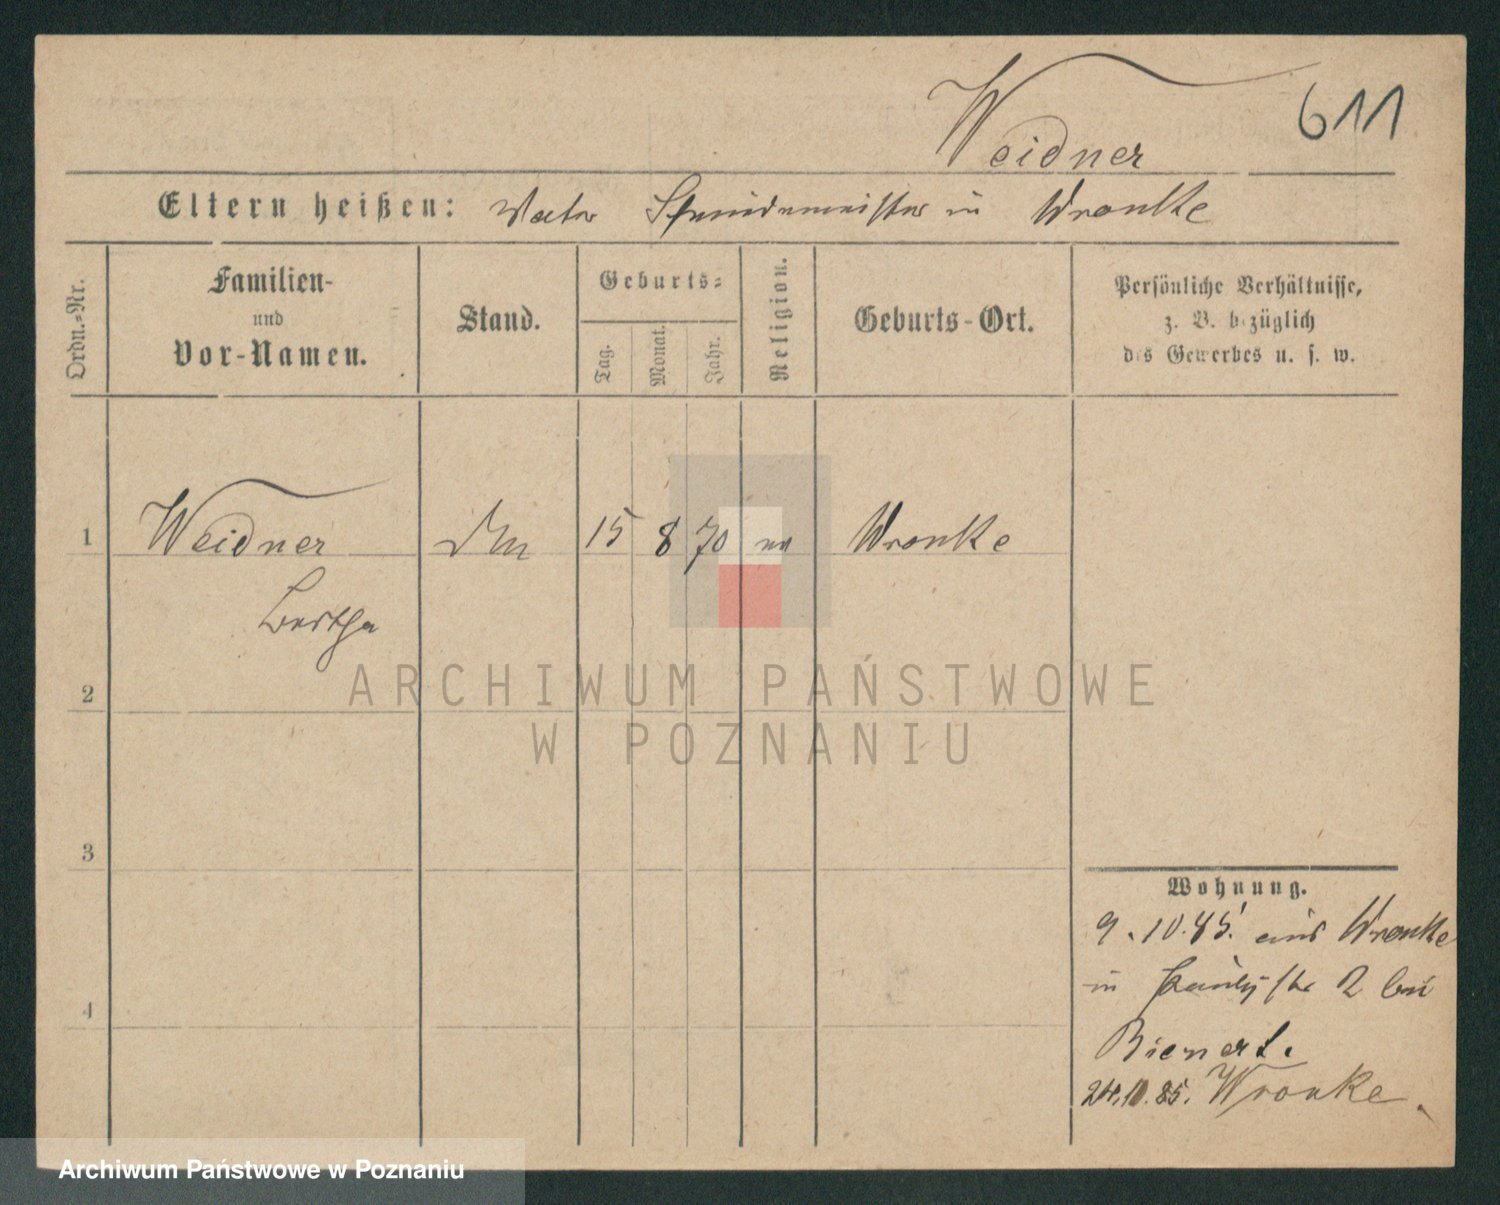 Weidner 611
Eltern heißen: Vater Schmiedemeister in Wronke
Ordn.-Nr.
Familien-
und
Vor-Namen.
Stand.
Geburts-
Tag.
Monat.
Jahr.
Religion.
Geburts-Ort.
Persönliche Verhältnisse,
z. B. bezüglich
des Gewerbes u. s. w.
1 Weidner 15 8 70 Wronke
Bertha
2
3
4
Wohnung.
9.10.85. aus Wronke
in 2 bei
Bienert.
24.10.85. Wronke.
ARCHIWUM PAŃSTWOWE
W POZNANIU
Archiwum Państwowe w Poznaniu